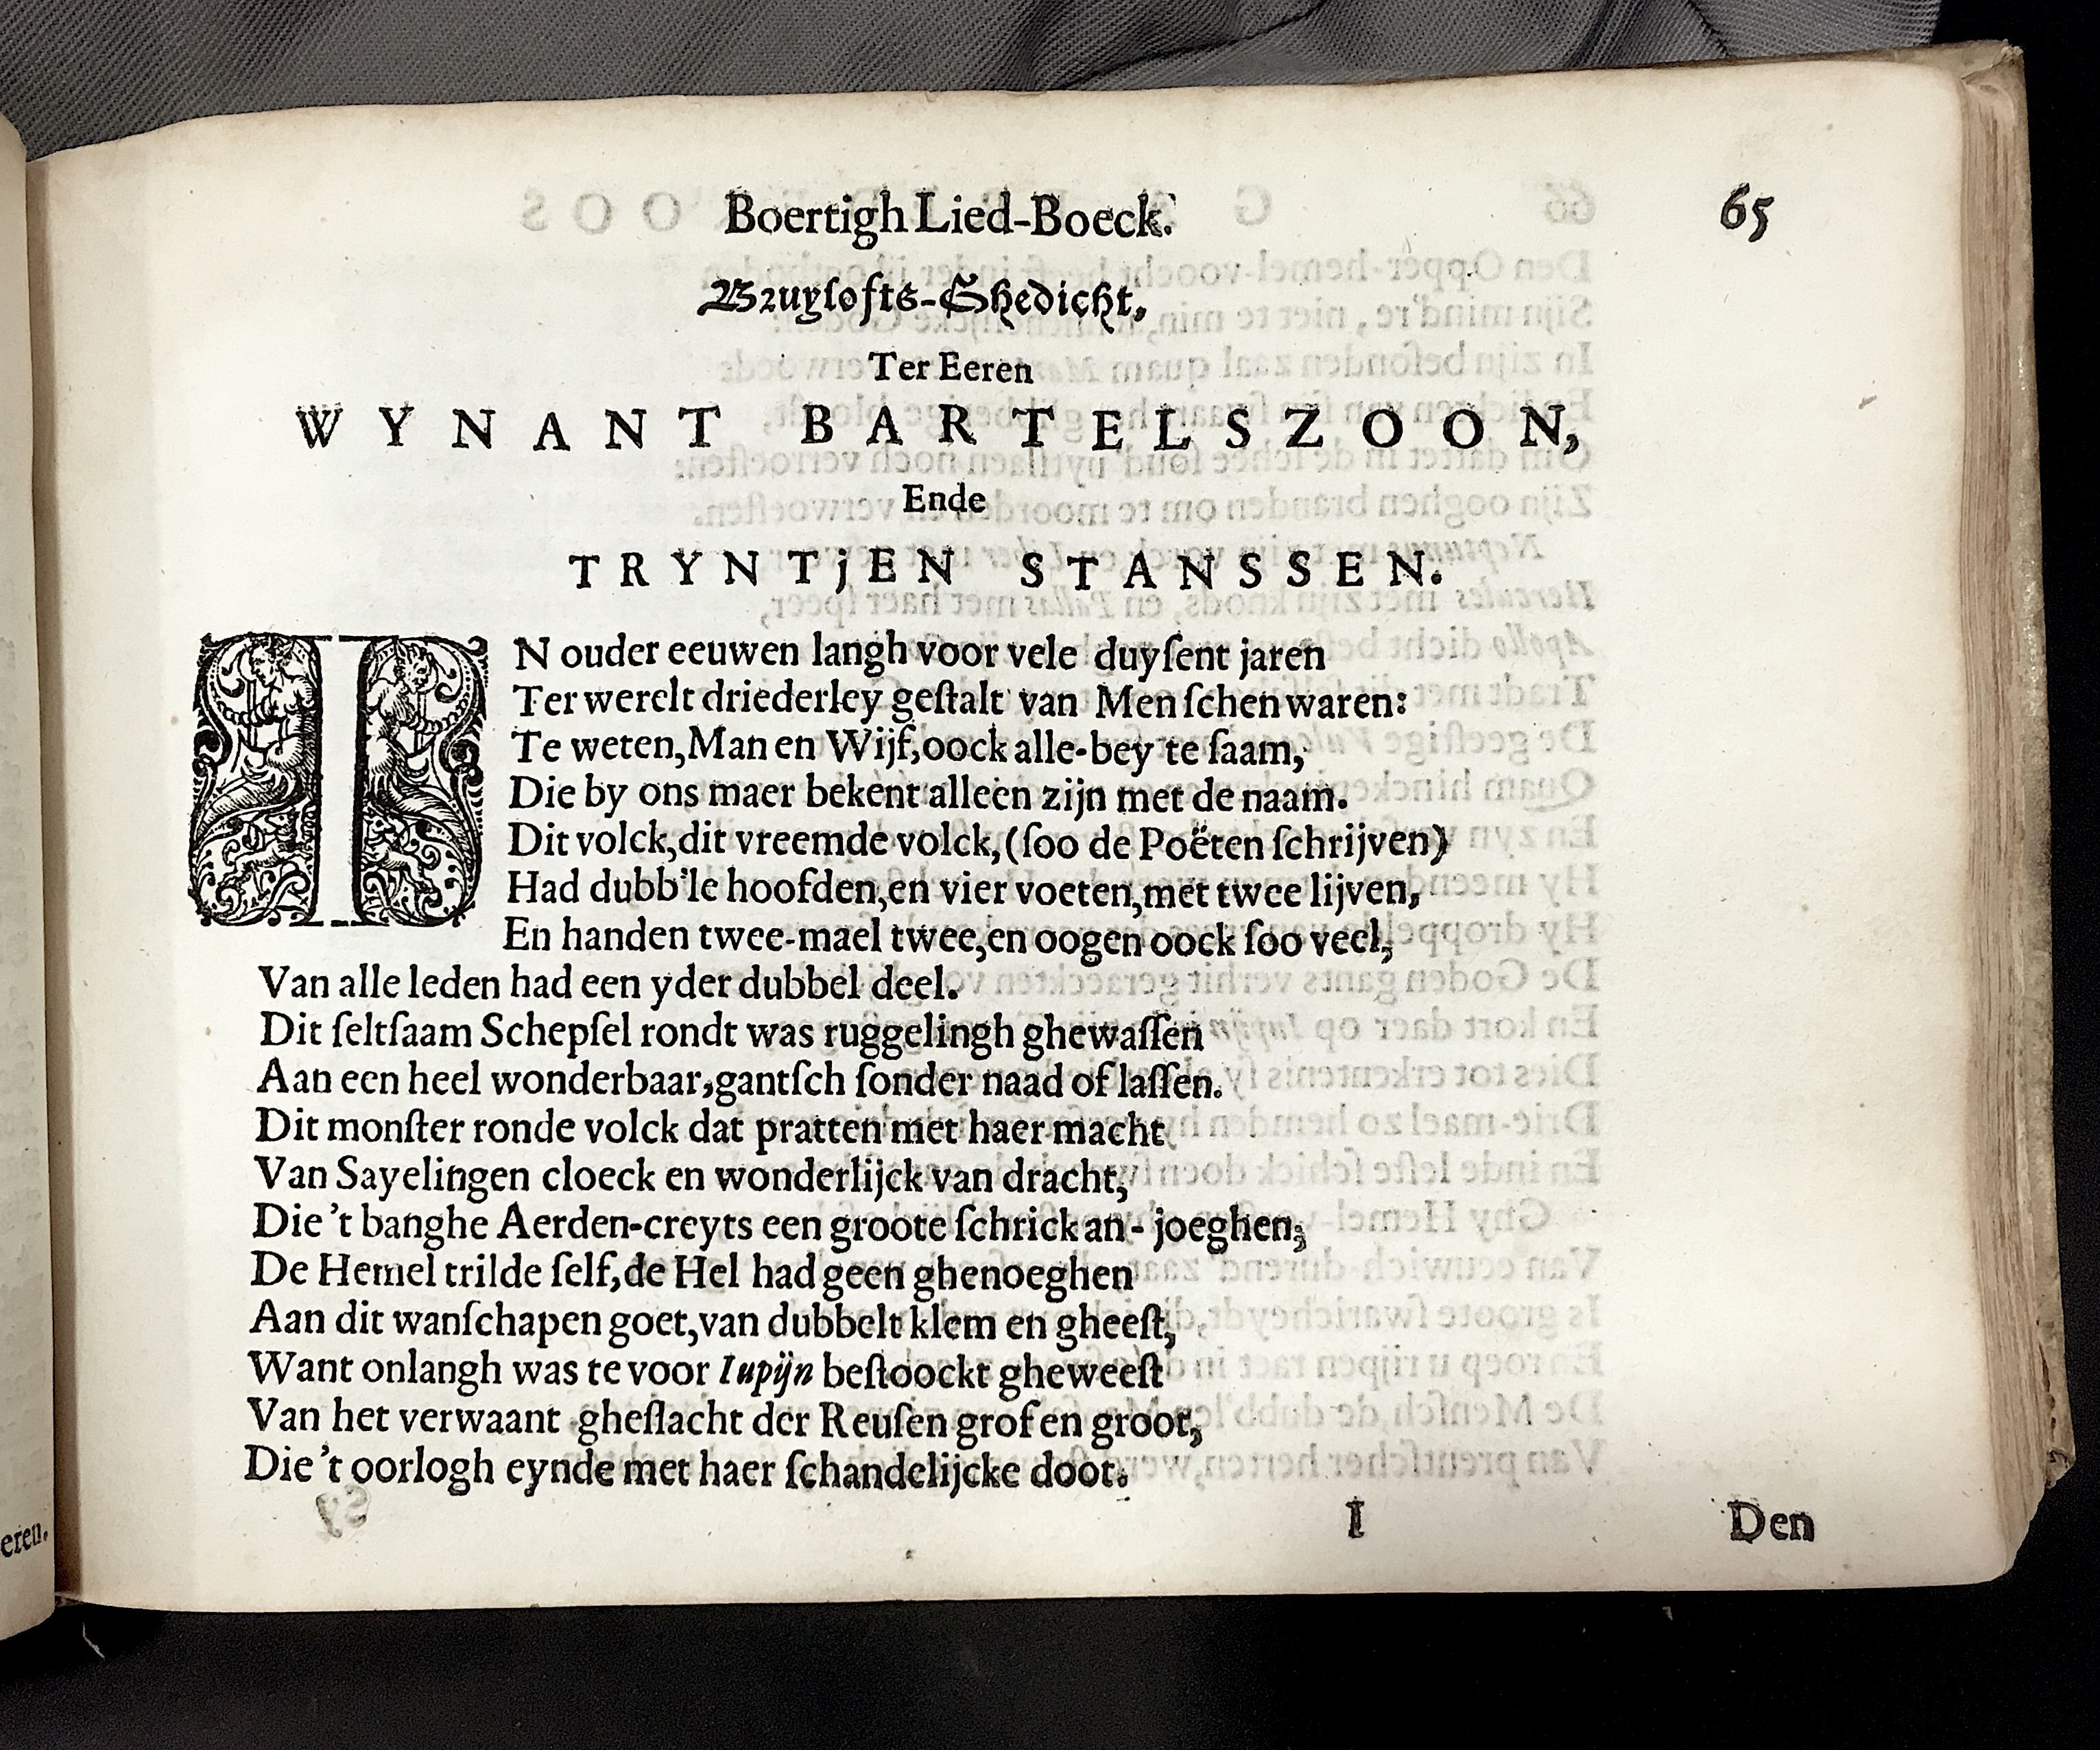 Boertigh Lied-Boeck. 65
Bruylofts-Ghedicht,
Ter Eeren
WYNANT BARTELSZOON,
Ende
TRYNTjEN STANSSEN.
IN ouder eeuwen langh voor vele duyſent jaren
Ter werelt driederley geſtalt van Menſchen waren:
Te weten, Man en Wijf, oock alle-bey te ſaam,
Die by ons maer bekent alleen zijn met de naam.
Dit volck, dit vreemde volck, (ſoo de Poëten ſchrijven)
Had dubb'le hoofden, en vier voeten, met twee lijven,
En handen twee-mael twee, en oogen oock ſoo veel,
Van alle leden had een yder dubbel deel.
Dit ſeltſaam Schepſel rondt was ruggelingh ghewaſſen
Aan een heel wonderbaar, gantſch ſonder naad of laſſen.
Dit monſter ronde volck dat pratten met haer macht
Van Sayelingen cloeck en wonderlijck van dracht,
Die 't banghe Aerden-creyts een groote ſchrick an-joeghen;
De Hemel trilde ſelf, de Hel had geen ghenoeghen
Aan dit wanſchapen goet, van dubbelt klem en gheeſt,
Want onlangh was te voor Iupijn beſtoockt gheweeſt
Van het verwaant gheſlacht der Reuſen grof en groot,
Die 't oorlogh eynde met haer ſchandelijcke doot.
I Den
eren.